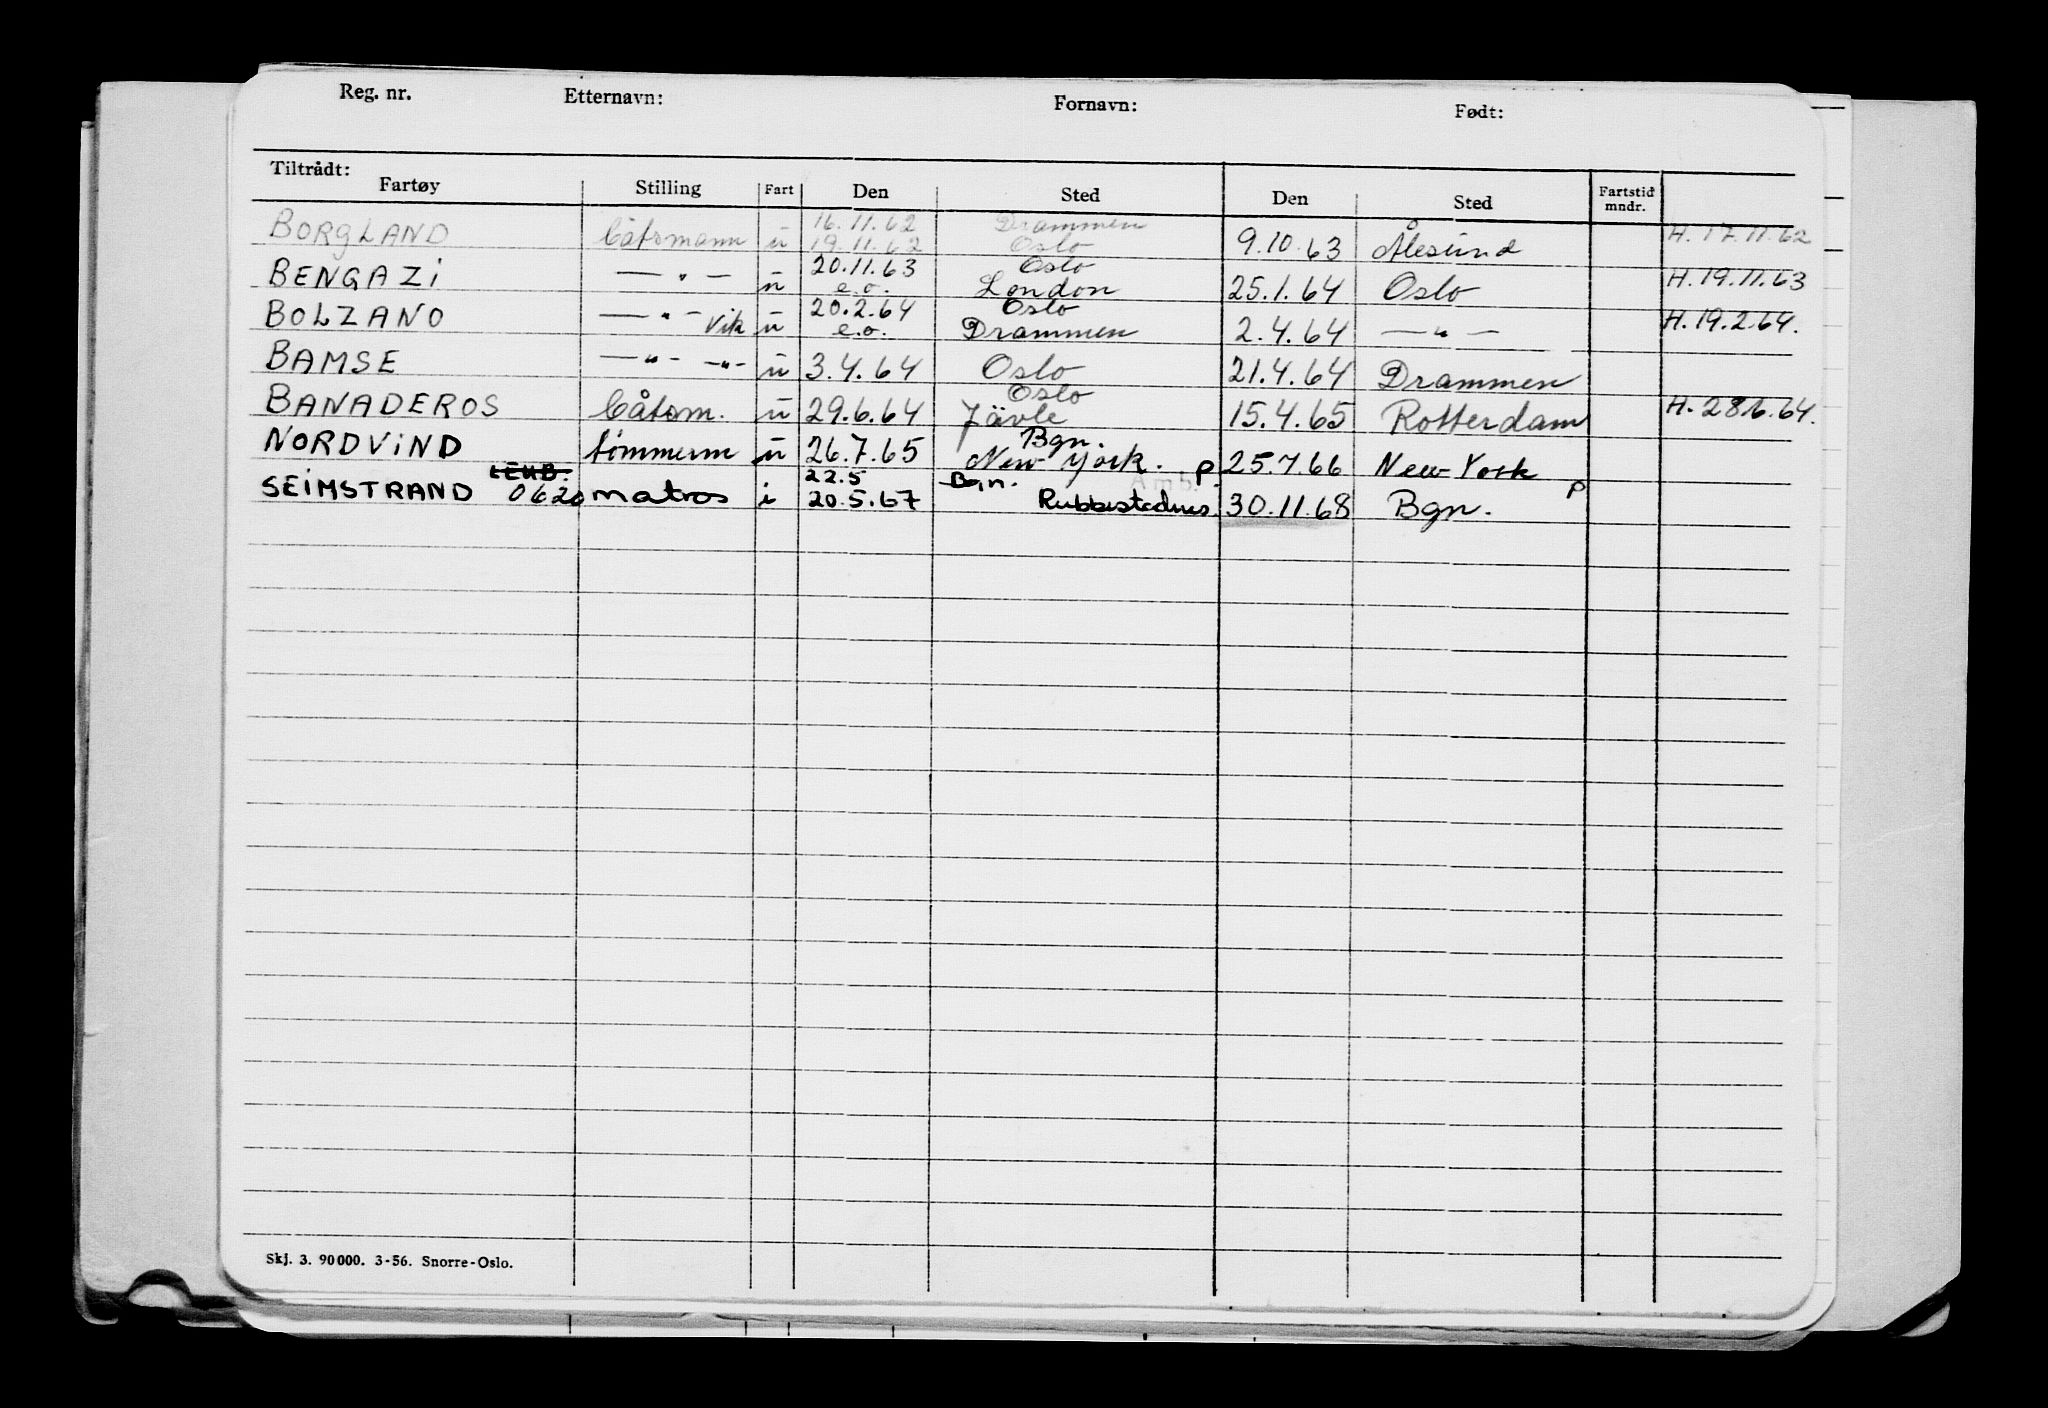 Reg. nr. Etternavn: Fornavn: Født:
Tiltrådt:
Fartøy Stilling Fart Den Sted Den Sted Fartstid mndr.
16.11.62 Drammen
BORGLAND båtsmann u 19.11.62 Oslo 9.10.63 Ålesund H. 17.11.62
20.11.63 Oslo
BENGAZI — " — u e.o. London 25.1.64 Oslo H. 19.11.63
20.2.64 Oslo
BOLZANO — " — vik u e.o. Drammen 2.4.64 — " — H. 19.2.64.
BAMSE — " — — " — u 3.4.64 Oslo 21.4.64 Drammen
Oslo
BANADEROS båtsm. u 29.6.64 Jävle 15.4.65 Rotterdam H. 28.6.64.
Bgn.
NORDVIND tømmerm u 26.7.65 New York. p 25.7.66 New York p
LEHB. 22.5 Bgn. Amb.
SEIMSTRAND 0620 matros i 20.5.67 Rubbestadnes. 30.11.68 Bgn.
Skj. 3. 90 000. 3-56. Snorre-Oslo.